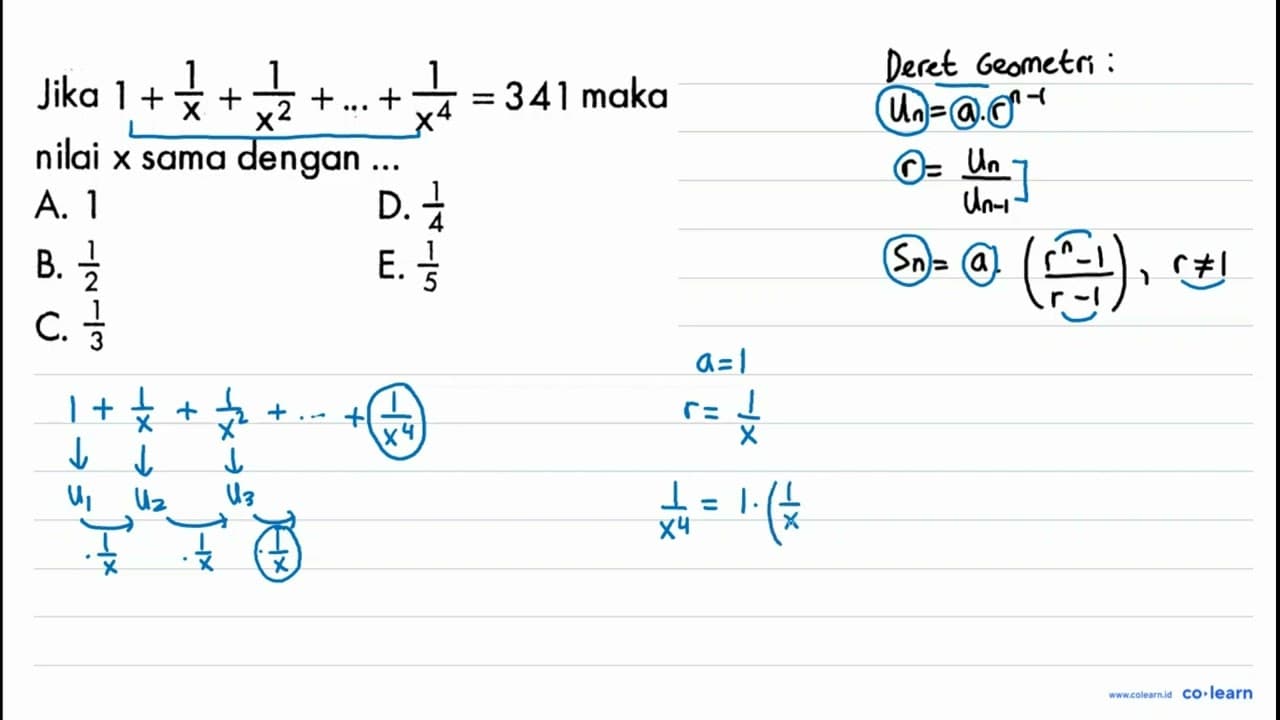 Jika 1 + 1/x + 1/x² + ... + 1/x⁴ = 341 maka
nilai x sama dengan ...
A. 1
B. 1/2
C. 1/3
D. 1/4
E. 1/5
Deret Geometri :
Un = a . r^(n-1)
r = Un / Un-1
Sn = a . ((r^n - 1) / (r - 1)) , r ≠ 1
1 + 1/x + 1/x² + ... + 1/x⁴
↓ ↓ ↓
U1 U2 U3
. 1/x . 1/x . 1/x
a = 1
r = 1/x
1/x⁴ = 1 . (1/x
www.colearn.id co·learn